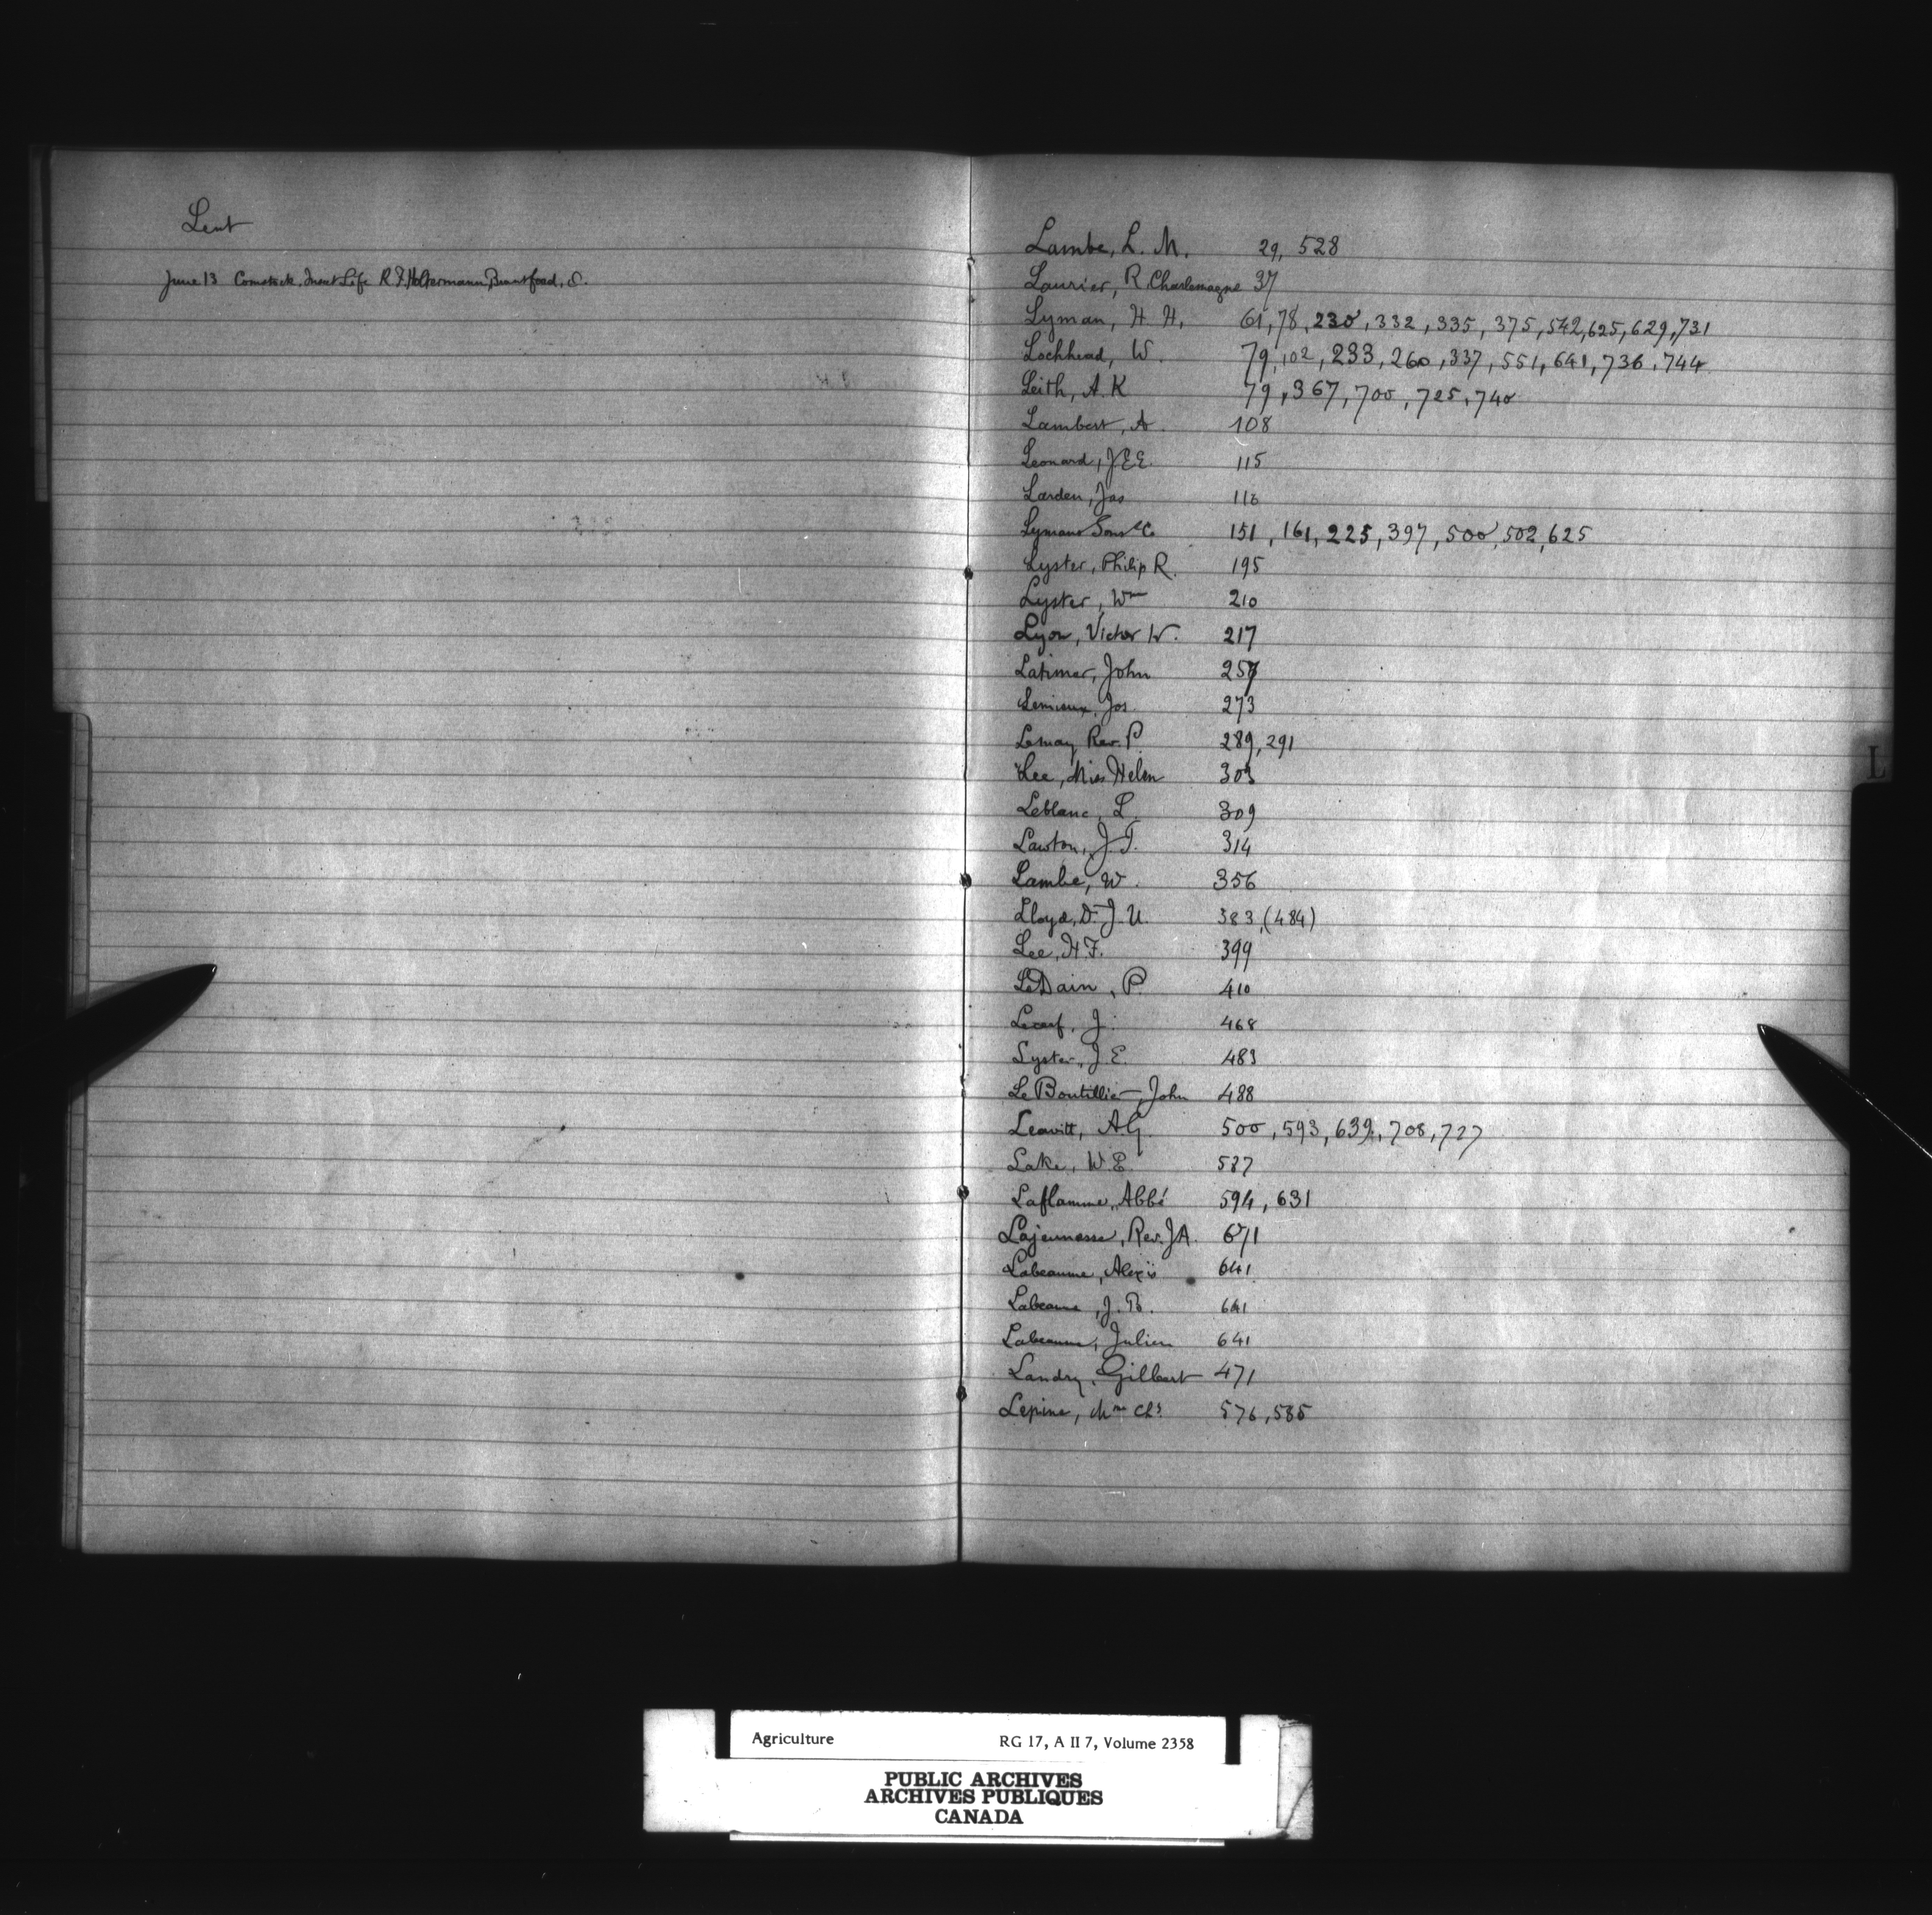 Lent
June 13 Comstock. Insect Life R. F. Holtermann, Brantford, O.
Lambe, L. M. 29, 528
Laurier, R. Charlemagne 37
Lyman, H. H. 61, 78, 230, 332, 335, 375, 542, 625, 629, 731
Lochhead, W. 79, 102, 233, 260, 337, 551, 641, 736, 744
Leith, A. K 79, 367, 700, 725, 740
Lambert, A. 108
Leonard, J E E. 115
Larden, Jas 116
Lymans Sons & Co 151, 161, 225, 397, 500, 502, 625
Lyster, Philip R. 195
Lyster, Wm 210
Lyon, Victor W. 217
Latimer, John 257
Lemieux, Jos. 273
Lemay Rev. P. 289, 291
Lee, Miss Helen 303
Leblanc, L. 309
Lawton, J. T. 314
Lambe, W. 356
Lloyd, Dr J. U. 383, (484)
Lee, H F. 399
LeDain, P. 410
Lecerf, J. 468
Lyster, J. E. 483
Le Boutillier, John 488
Leavitt, A G. 500, 593, 639, 708, 727
Lake, W E. 587
Laflamme, Abbé 594, 631
Lajeunesse, Rev. J A. 671
Labeaume, Alexis 641
Labeaume, J. B. 641
Labeaume, Julien 641
Landry, Gilbert 471
Lepine, Mme Chs 576, 585
L
Agriculture RG 17, A II 7, Volume 2358
PUBLIC ARCHIVES
ARCHIVES PUBLIQUES
CANADA